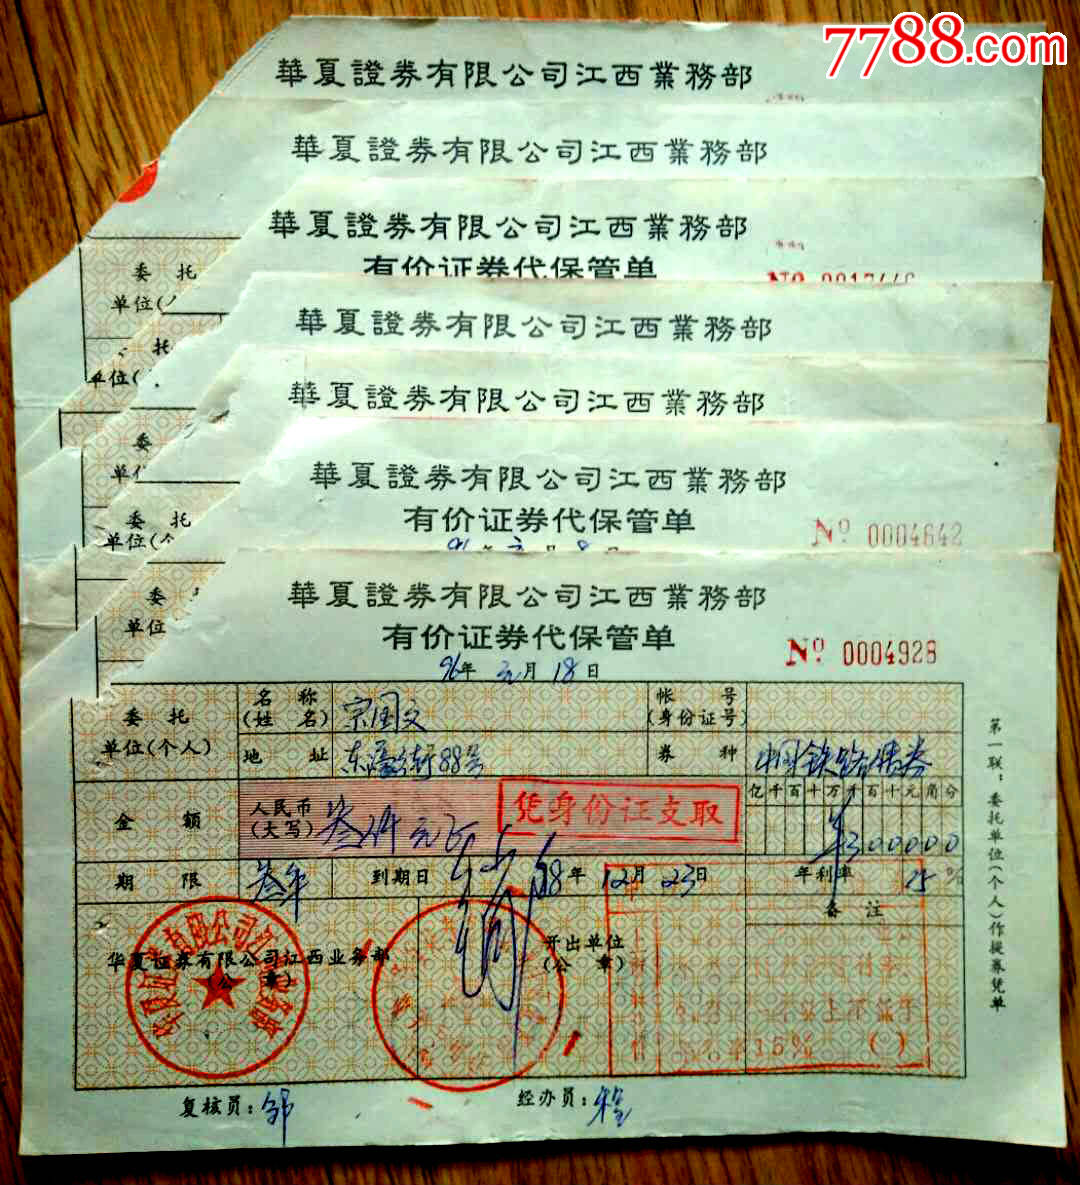 7788.com
華夏證券有限公司江西業務部
華夏證券有限公司江西業務部
華夏證券有限公司江西業務部
有价证券代保管单
委托
单位(
华夏證券有限公司江西業務部
托
单位(
華夏證券有限公司江西業務部
委
单位
華夏證券有限公司江西業務部
有价证券代保管单 Nº 0004642
委托
单位(个
96年元月8日
委
单位
華夏證券有限公司江西業務部
有价证券代保管单
Nº 0004928
96年元月18日
委托
单位(个人)
名称
(姓名)
宗国文
帐号
(身份证号)
地址
东 街88号
券种
中国铁路债券
金额
人民币
(大写)
叁仟元正
凭身份证支取
亿千百十万千百十元角分
¥300000
期限
叁年
到期日
98年12月23日
年利率
15%
备注
华夏证券有限公司江西业务部
(公章)
开出单位
(公章)
15% ( )
复核员:邹
经办员:
第一联:委托单位(个人)作提券凭单